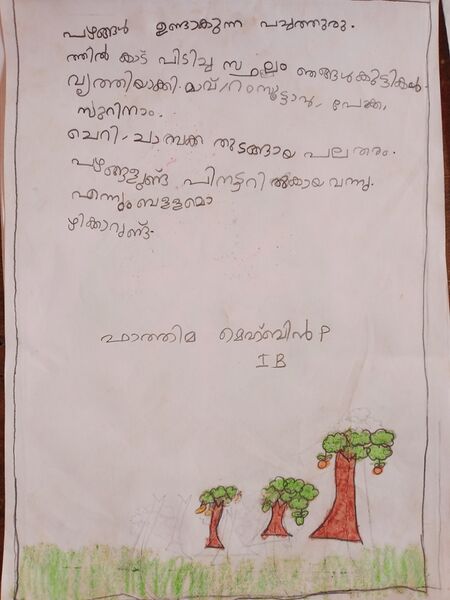 പഴങ്ങൾ ഉണ്ടാകുന്ന പച്ചത്തുരു.
ത്തിൽ കാട് പിടിച്ച സ്ഥലം ഞങ്ങൾകുട്ടികൾ.
വൃത്തിയാക്കി. മാവ്, റംബൂട്ടാൻ, പേക്ക,
സുറിനാം.
ചെറി, ചാമ്പക്ക തുടങ്ങായ പല തരം.
പഴങ്ങളുണ്ട് പിന്നട്ടറി ആകായ വന്നു.
എന്നും ബള്ളമൊ
ഴിക്കാറുണ്ട്.
ഫാത്തിമ മെഹ്ബിൻ P
I B